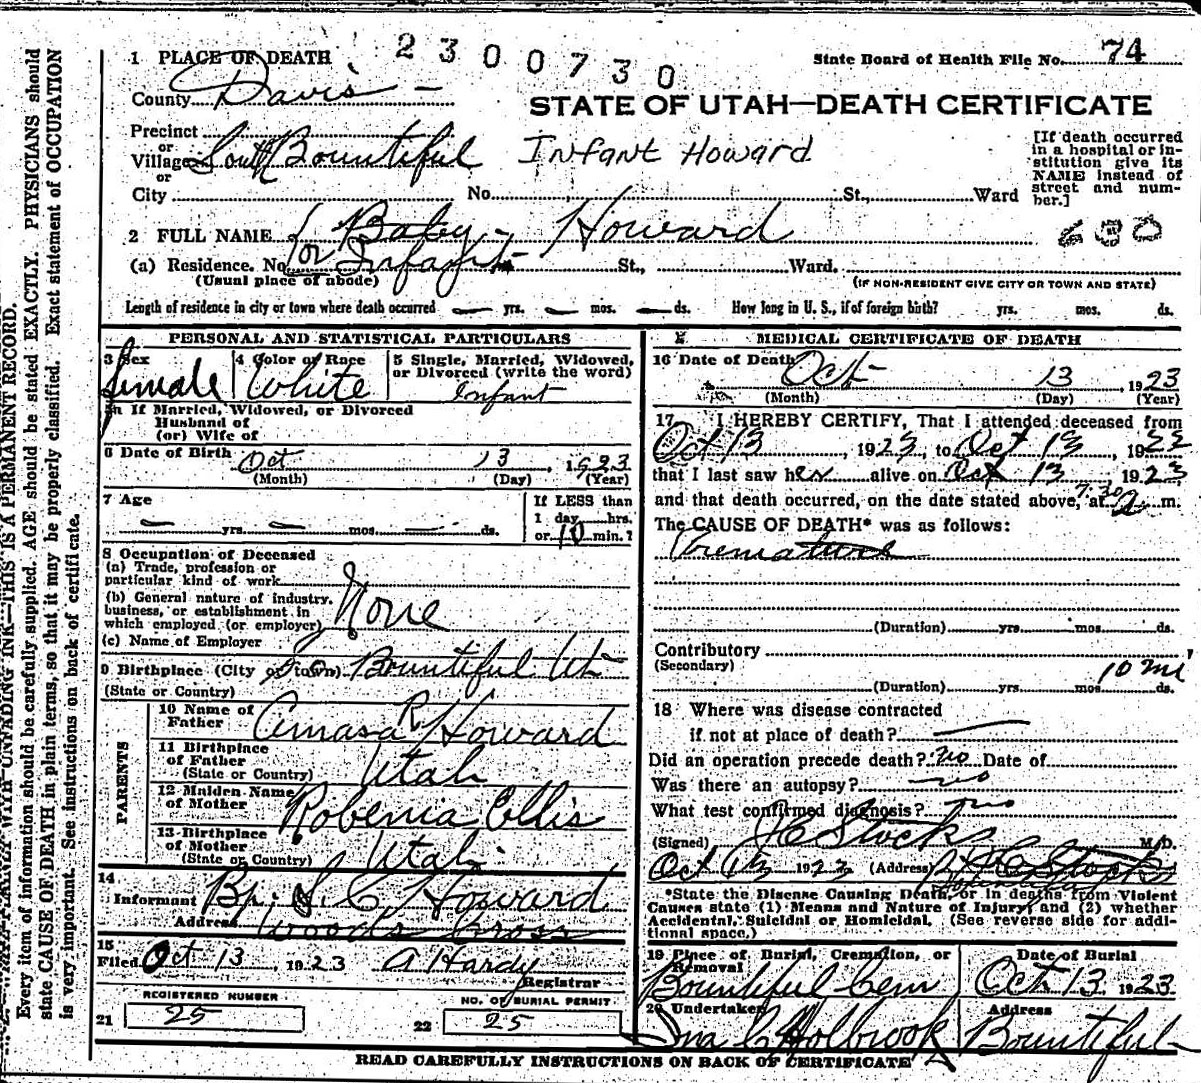 1 PLACE OF DEATH 2300730 State Board of Health File No. 74
County Davis
STATE OF UTAH—DEATH CERTIFICATE
Precinct
or
Village South Bountiful Infant Howard
or
City No. St., Ward
[If death occurred
in a hospital or in-
stitution give its
NAME instead of
street and num-
ber.]
2 FULL NAME Baby Howard
or Infant
(a) Residence. No. St., Ward.
(Usual place of abode) (IF NON-RESIDENT GIVE CITY OR TOWN AND STATE)
Length of residence in city or town where death occurred — yrs. — mos. — ds. How long in U. S., if of foreign birth? yrs. mos. ds.
PERSONAL AND STATISTICAL PARTICULARS
3 Sex 4 Color or Race 5 Single, Married, Widowed,
or Divorced (write the word)
female White Infant
If Married, Widowed, or Divorced
Husband of
(or) Wife of
6 Date of Birth Oct 13, 1923
(Month) (Day) (Year)
7 Age If LESS than
1 day hrs.
— yrs. — mos. — ds. or 10 min.?
8 Occupation of Deceased
(a) Trade, profession or
particular kind of work
(b) General nature of industry,
business, or establishment in
which employed (or employer) None
(c) Name of Employer
9 Birthplace (City or town) So Bountiful Ut
(State or Country)
PARENTS
10 Name of
Father Amasa R Howard
11 Birthplace
of Father
(State or Country) Utah
12 Maiden Name
of Mother Robenia Ellis
13 Birthplace
of Mother
(State or Country) Utah
14
Informant Bp. S. C. Howard
Address Woods Cross
15
Filed Oct 13, 1923 A Hardy
Registrar
REGISTERED NUMBER NO. OF BURIAL PERMIT
21 25 22 25
MEDICAL CERTIFICATE OF DEATH
16 Date of Death Oct 13, 1923
(Month) (Day) (Year)
17 I HEREBY CERTIFY, That I attended deceased from
Oct 13, 1923, to Oct 13, 1923
that I last saw her alive on Oct 13 1923
and that death occurred, on the date stated above, at 7:30 m.
The CAUSE OF DEATH* was as follows:
Premature
(Duration) yrs. mos. ds.
Contributory
(Secondary) 10 mi
(Duration) yrs. mos. ds.
18 Where was disease contracted
if not at place of death? —
Did an operation precede death? no Date of
Was there an autopsy? no
What test confirmed diagnosis? no
(Signed) J C Stocks M.D.
Oct 13 1923 (Address)
*State the Disease Causing Death, or in deaths from Violent
Causes state (1) Means and Nature of Injury; and (2) whether
Accidental, Suicidal or Homicidal. (See reverse side for addi-
tional space.)
19 Place of Burial, Cremation, or
Removal Date of Burial
Bountiful Cem Oct 13 1923
20 Undertaker Address
Holbrook Bountiful
READ CAREFULLY INSTRUCTIONS ON BACK OF CERTIFICATE
THIS IS A PERMANENT RECORD.
Every item of information should be carefully supplied. AGE should be stated EXACTLY. PHYSICIANS should
state CAUSE OF DEATH in plain terms, so that it may be properly classified. Exact statement of OCCUPATION
is very important. See instructions on back of certificate.